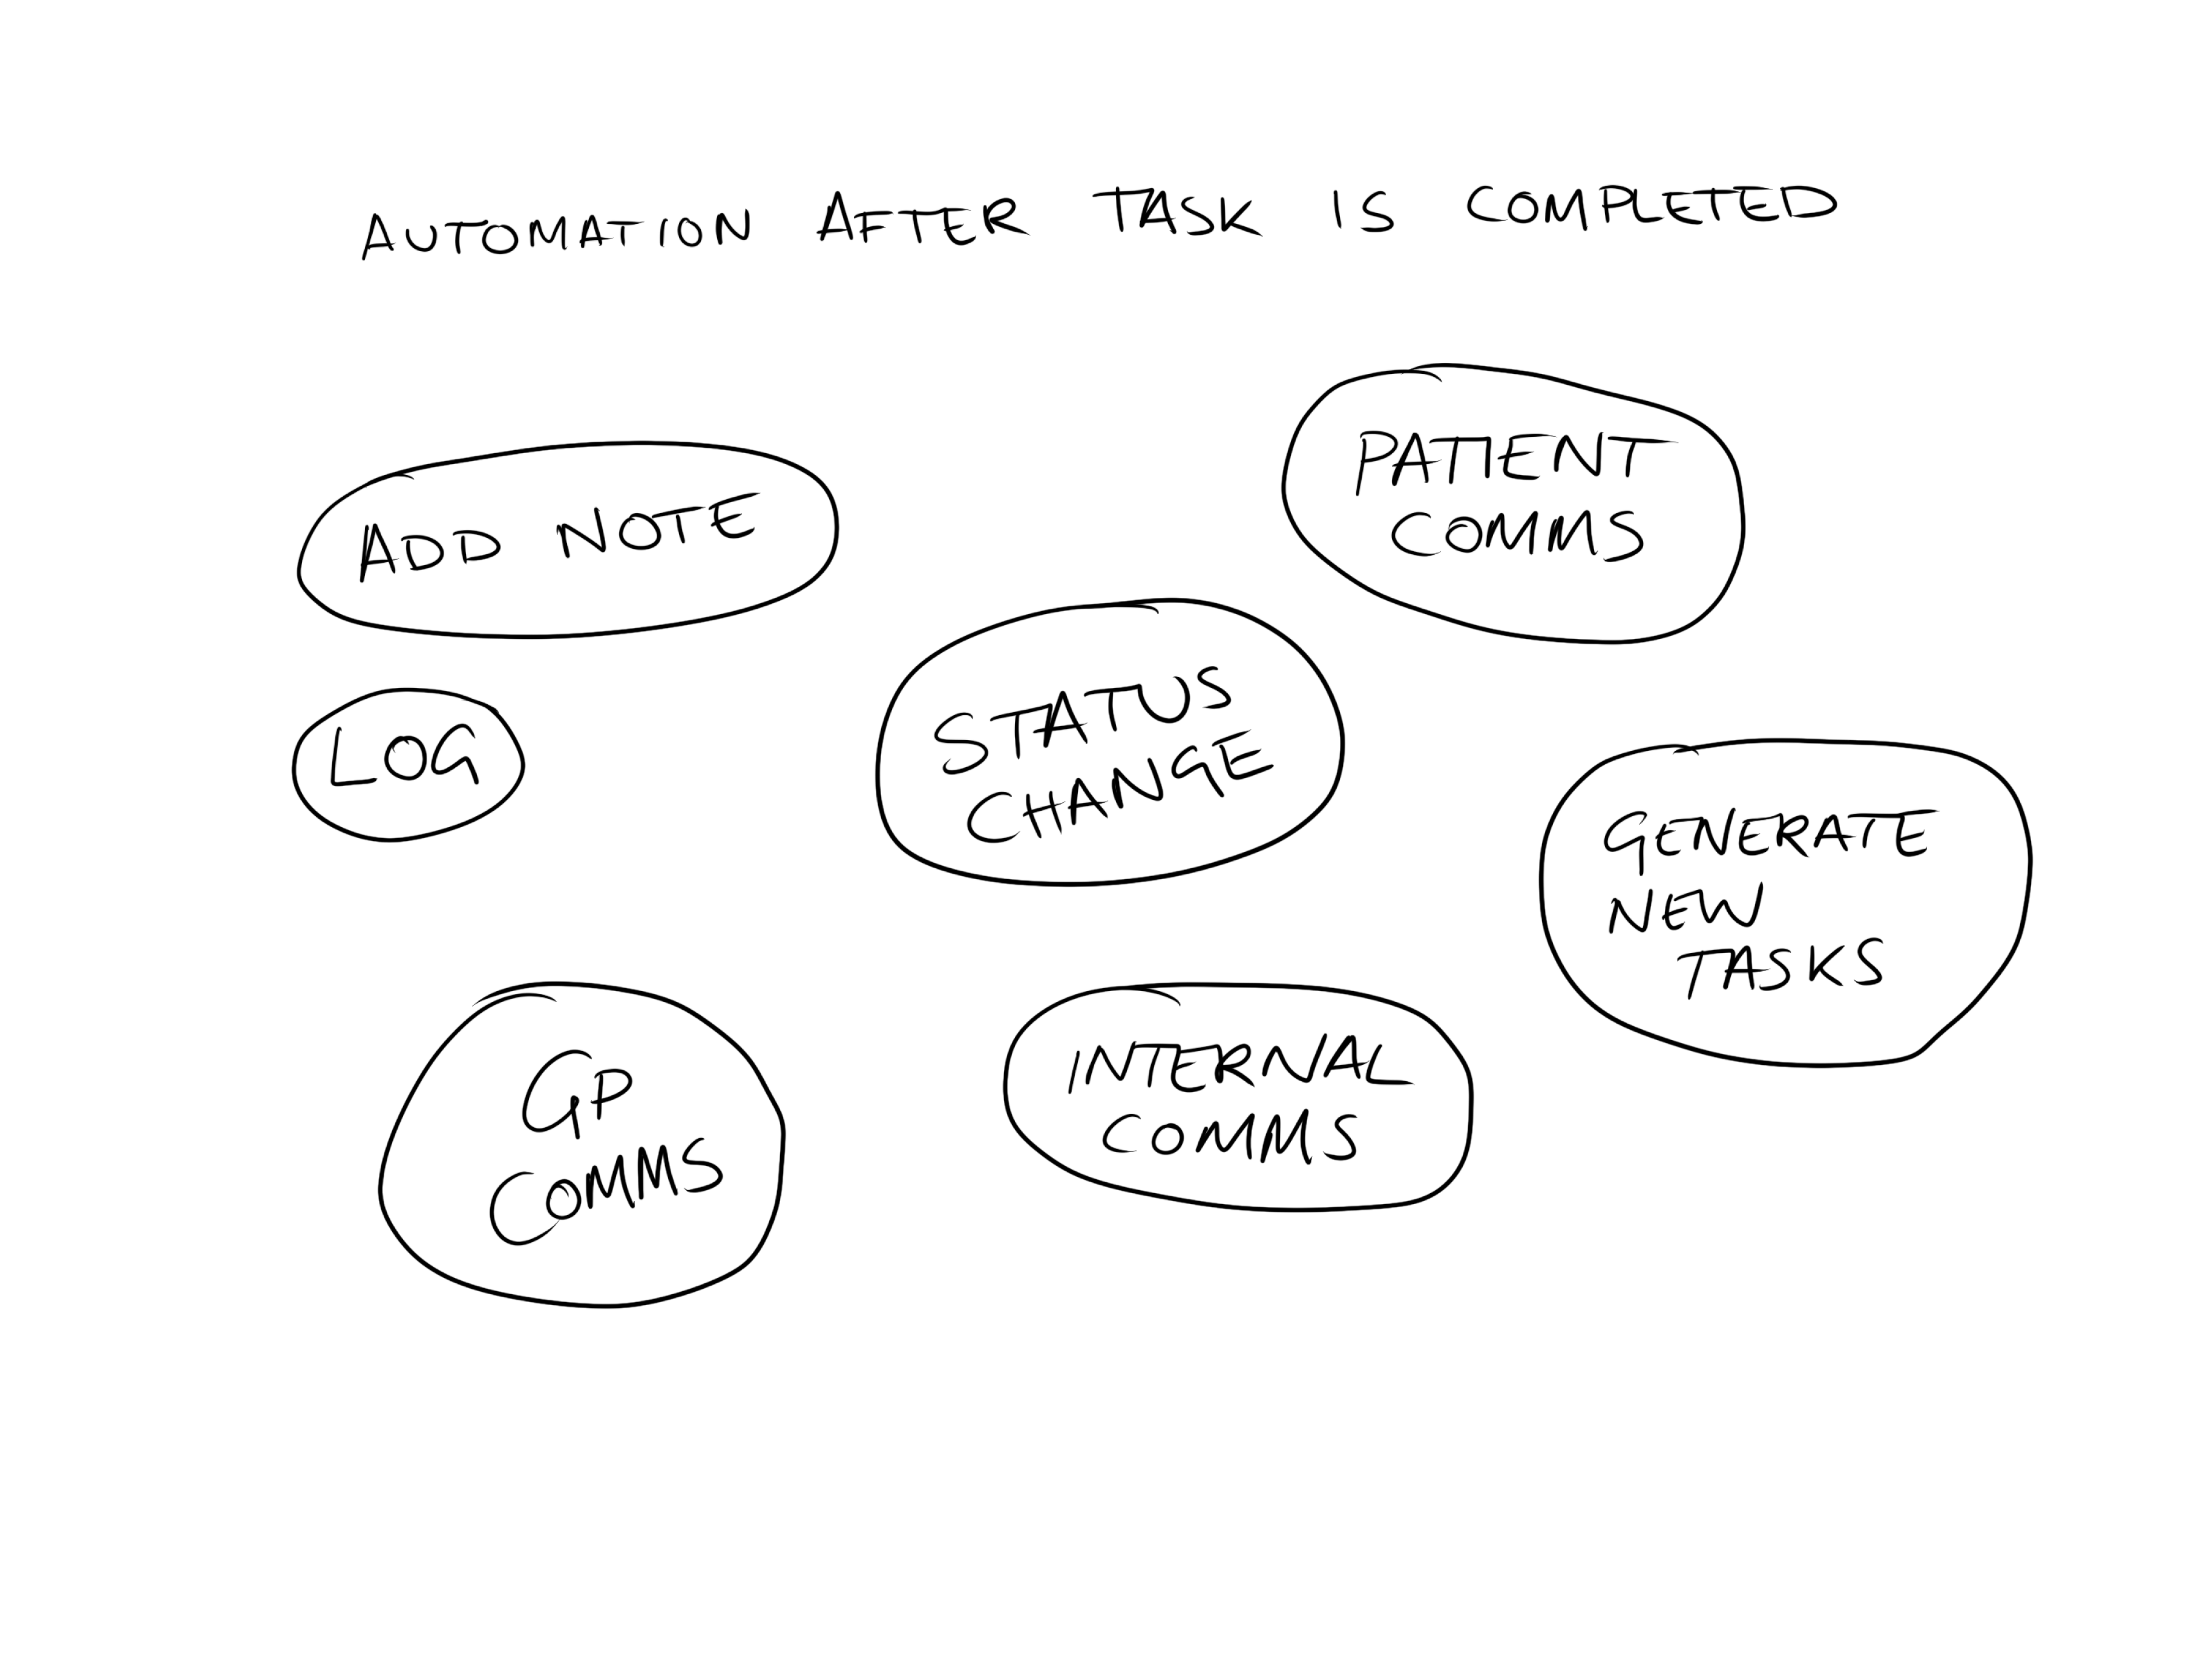 AUTOMATION AFTER TASK IS COMPLETED
PATIENT
COMMS
ADD NOTE
STATUS
CHANGE
LOG
GENERATE
NEW
TASKS
GP
COMMS
INTERNAL
COMMS